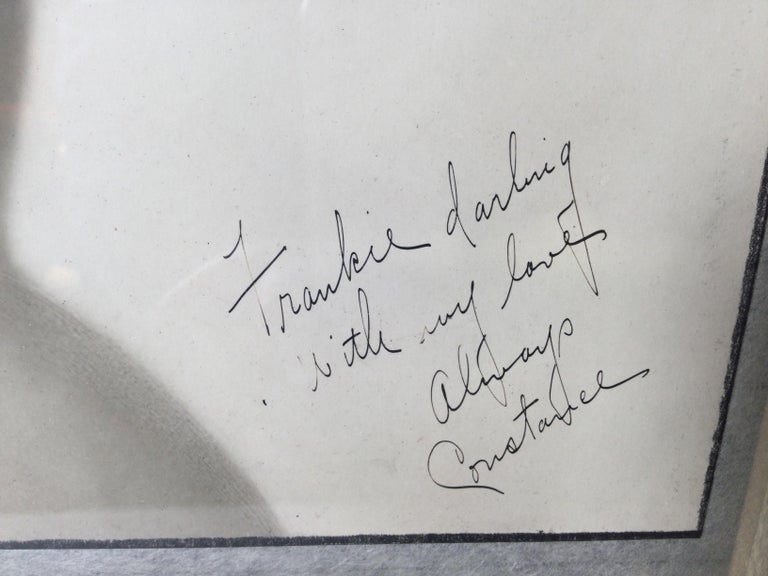 Frankie darling
with my love
Always
Constance